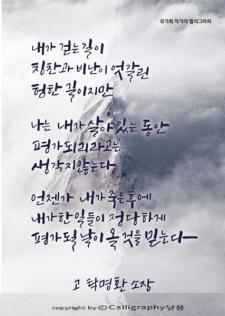 유가희 작가의 캘리그라피
내가 걷는 길이
칭찬과 비난이 엇갈린
험한 길이지만
나는 내가 살아있는 동안
평가되리라고는
생각지 않는다
언젠가 내가 죽은 후에
내가 한 일들이 정당하게
평가될 날이 올 것을 믿는다
고 탁명환 소장
copyright by ⓒ Calligraphy담용